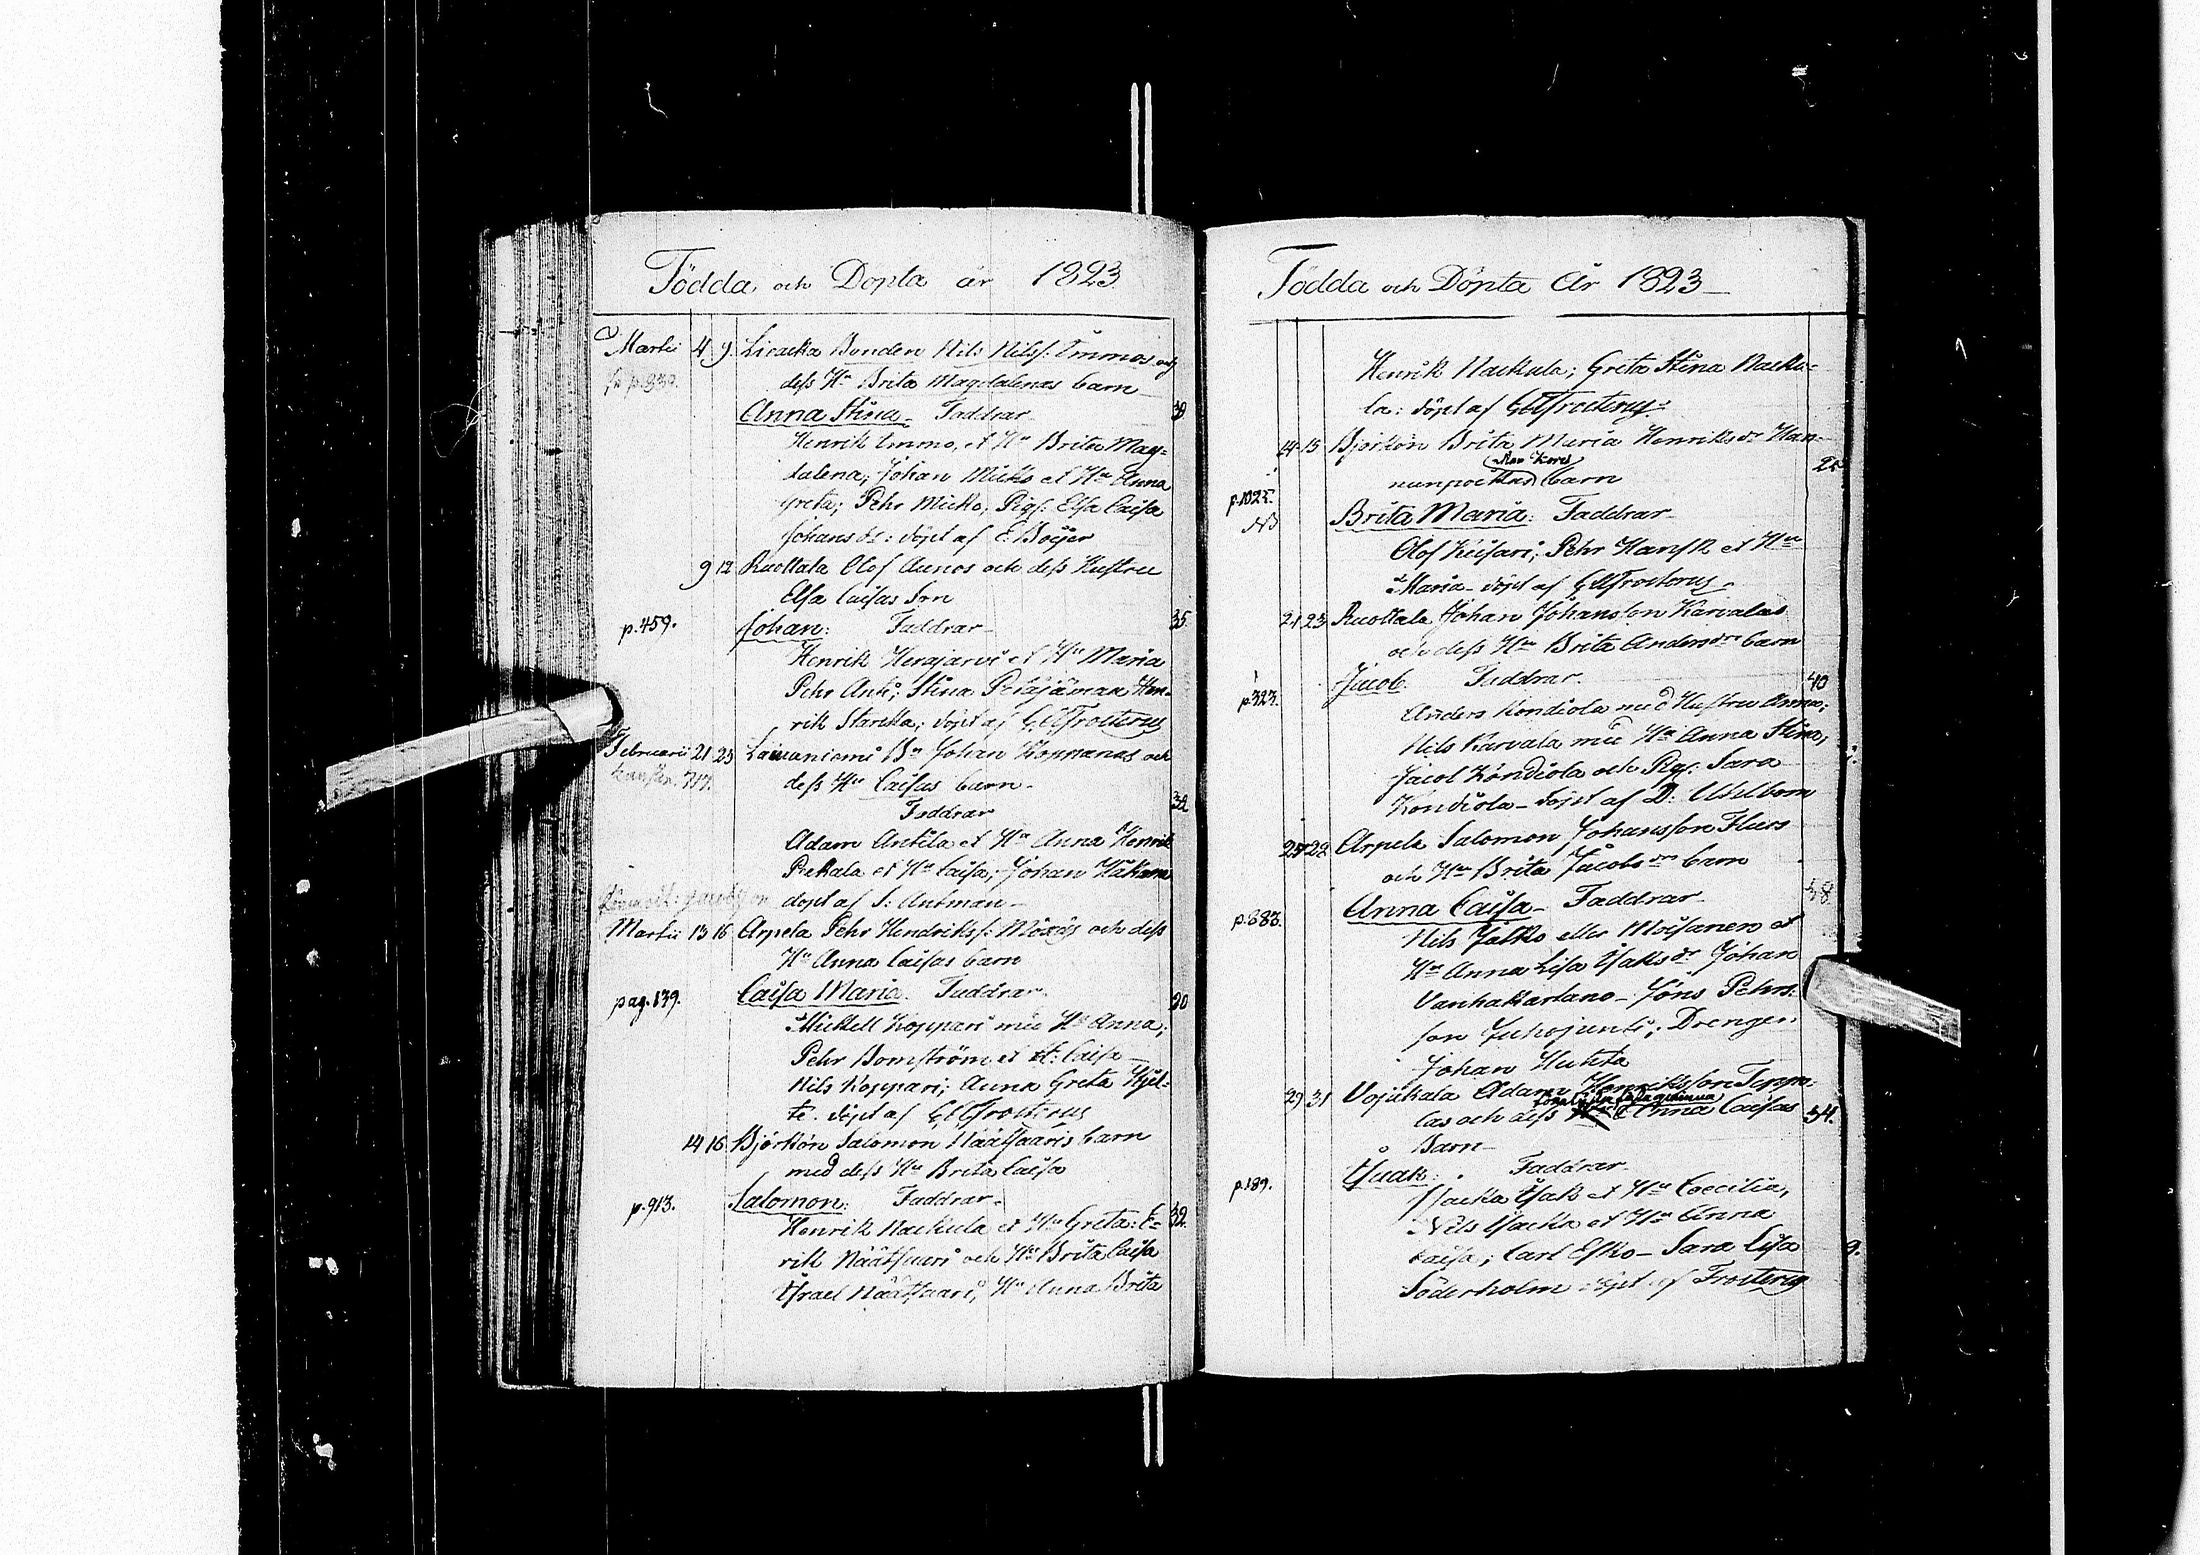 Födda och Döpta år 1823
Martii 4 9 Liedacka Bonden Nils Nilss: Ommas och
p. 830. dess Hu Brita Magdalenas barn
Anna Stina Faddrar 39
Henrik Ommo, et Hu Brita Mag=
dalena; Johan Micko et Hu Anna
Greta; Pehr Micko, Pig: Elsa Caisa
Johansdr: döpt af E. Böijer
9 12 Ruottala Olof Aunos och dess Hustru
Elsa Caisas Son
p. 459. Johan: Faddrar 35.
Henrik Herajärvi et Hu Maria
Pehr Anti; Stina Petäjämaa Hen-
rik Starcka; döpt af Frosterus
Februarii 21 23 Laivaniemi Bn Johan Kopmanas och
dess Hu Caisas barn
Faddrar 32
Adam Antila et Hu Anna Henrik
Pekala et Hu Caisa; Johan
döpt af S: Antman
Martii 13 16 Arpela Pehr Hendrikss: Möxys och dess
Hu Anna Caisas barn
pag. 139. Caisa Maria. Faddrar. 20
Mickell Koppari med Hu Anna;
Pehr Bomström et H: Caisa
Nils Koppari; Anna Greta Hjel-
te. döpt af Frosterus
14 16 Björkön Salomon Näätsaaris barn
med dess Hu Brita Caisa
p. 913. Salomon: Faddrar. 32.
Henrik Nackula et Hu Greta: E-
rik Näätsaari och Hu Brita Caisa
Israel Näätsaari; Hu Anna Brita
Födda och Döpta År 1823
Henrik Nackula; Greta Stina Nacku-
la: döpt af Frosterus
14 15 Björkön Brita Maria Henriksdr Han-
nunpoikas barn
p. 1025. NB Brita Maria: Faddrar
Olof Kuisari; Pehr Hansk et Hu
Maria döpt af Frosterus
21 23 Ruottala Johan Johansson Karvalas
och dess Hu Brita Andersdrs barn
p. 323. Jacob. Faddrar. 40
Anders Kondiola med Hustru Anna;
Nils Karvala med Hu Anna Stina;
Jacob Kondiola och Pig: Sara
Kondiola döpt af D: Uhlbom
28 Arpela Salomon Johansson Flurs
och Hu Brita Jacobsdrs barn
p. 883. Anna Caisa Faddrar 38
Nils Jatko eller Moisanen et
Hu Anna Lisa Isaksdr Johan
Vanhakartano Jöns Pehrs-
son Juhojunti; Drengen
Johan Huhta
29 31 Vojakala Adam Henriksson Teppo-
las och dess Anna Caisas 34.
Barn
p. 189. Isaak: Faddrar
Isak et Hu Coecilia,
Nils et Hu Anna
Caisa; Carl Esko Sara Lisa
Söderholm döpt af Frosterus